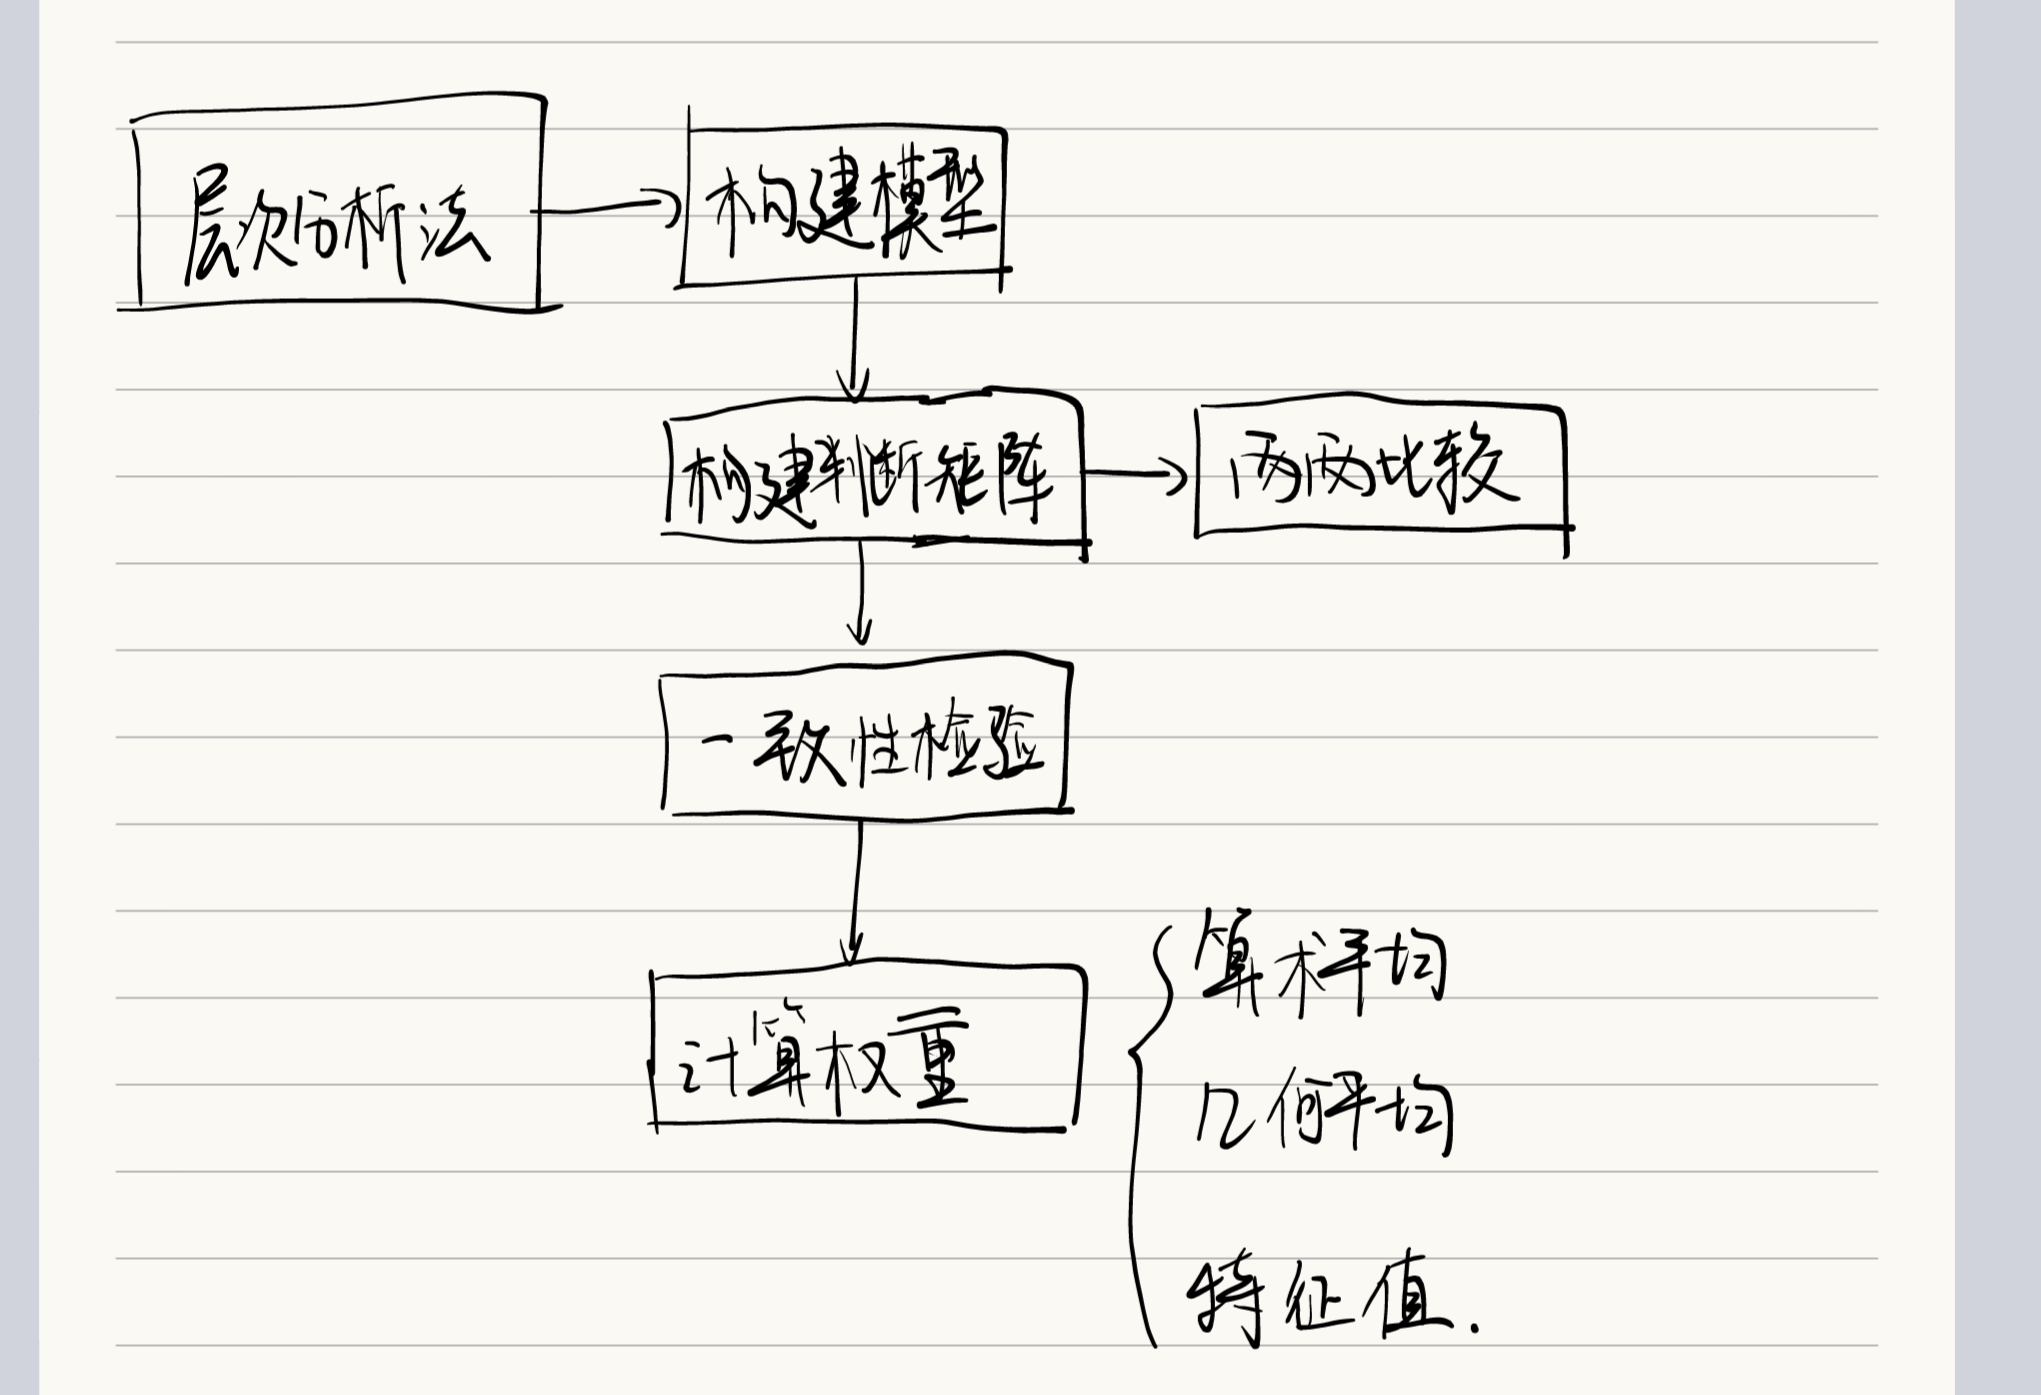 层次分析法
构建模型
构建判断矩阵
两两比较
一致性检验
计算权重
算术平均
几何平均
特征值.